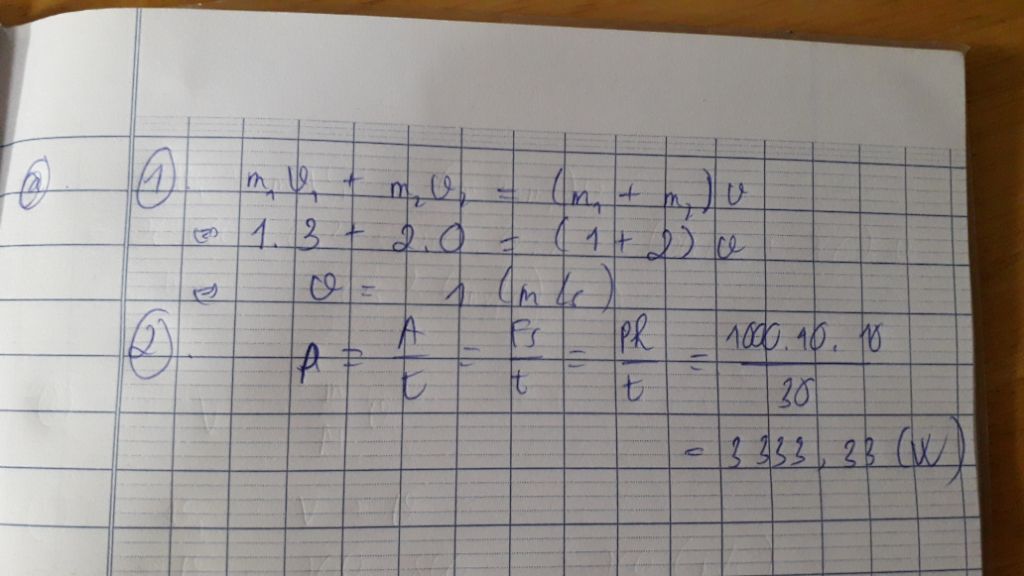 a ① m₁v₁ + m₂v₂ = (m₁ + m₂)v
⇔ 1.3 + 2.0 = (1+2)v
⇔ v = 1 (m/s)
② P = A/t = Fs/t = Ph/t = 1000.10.10/30
= 3333,33 (W)